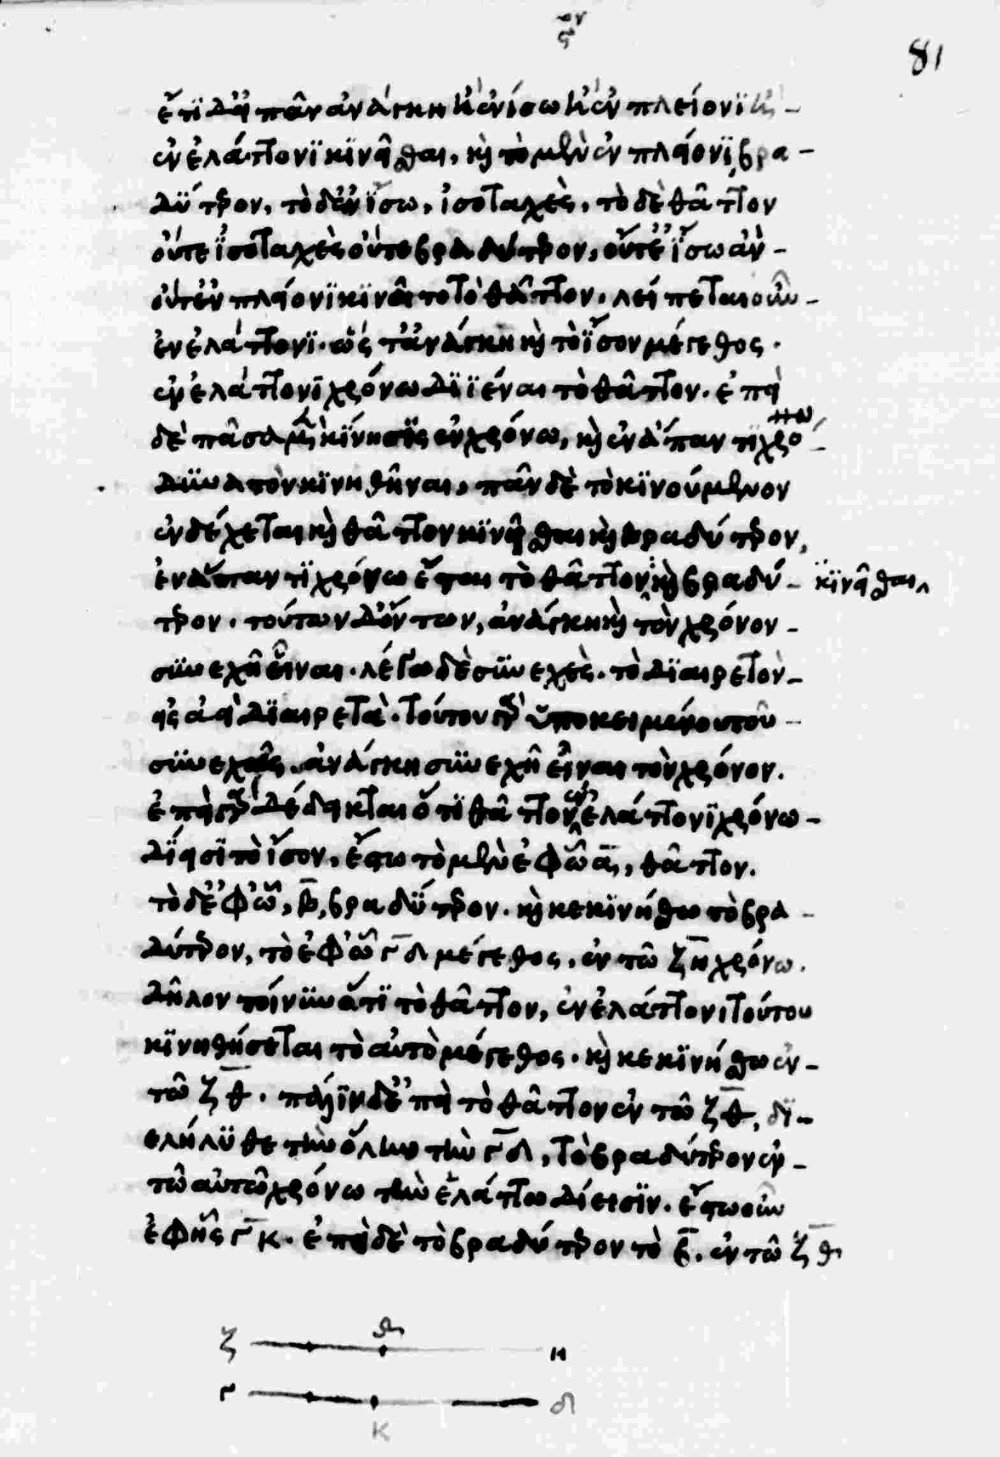 81
ἔτι δὴ πᾶν ἀνάγκη ἢ ἐν ἴσω ἢ ἐν πλείονι ἢ
ἐν ἐλάττονι κινεῖσθαι. καὶ τὸ μὲν ἐν πλείονι, βρα-
δύτερον, τὸ δ' ἐν ἴσω, ἰσοταχὲς. τὸ δὲ θᾶττον
οὔτε ἰσοταχὲς οὔτε βραδύτερον, οὔτ' ἐν ἴσω ἂν
οὔτ' ἐν πλείονι κινοῖτο τὸ θᾶττον. λείπεται οὖν
ἐν ἐλάττονι. ὥστ' ἀνάγκη καὶ τὸ ἴσον μέγεθος.
ἐν ἐλάττονι χρόνω διιέναι τὸ θᾶττον. ἐπεὶ
δὲ πᾶσα μὲν κίνησις ἐν χρόνω, καὶ ἐν ἅπαντι χρό
νω
δυνατὸν κινηθῆναι, πᾶν δὲ τὸ κινούμενον
ἐνδέχεται καὶ θᾶττον κινεῖσθαι καὶ βραδύτερον,
ἐν ἅπαντι χρόνω ἔσται τὸ θᾶττον κινεῖσθαι καὶ βραδύ-
τερον. τούτων δ' ὄντων, ἀνάγκη καὶ τὸν χρόνον
συνεχῆ εἶναι. λέγω δὲ συνεχὲς. τὸ διαιρετὸν
εἰς ἀεὶ διαιρετὰ. τούτου γὰρ ὑποκειμένου τοῦ
συνεχοῦς. ἀνάγκη συνεχῆ εἶναι τὸν χρόνον.
ἐπεὶ γὰρ δέδεικται ὅτι θᾶττον ἐν ἐλάττονι χρόνω
δίεισι τὸ ἴσον, ἔστω τὸ μὲν ἐφ' ὧ α, θᾶττον.
τὸ δ' ἐφ' ὧ, β, βραδύτερον. καὶ κεκινήσθω τὸ βρα
δύτερον, τὸ ἐφ' ὧ γδ μέγεθος. ἐν τῶ ζη χρόνω.
δῆλον τοίνυν ὅτι τὸ θᾶττον, ἐν ἐλάττονι τούτου
κινηθήσεται τὸ αὐτὸ μέγεθος. καὶ κεκινήσθω ἐν
τῶ ζθ. πάλιν δ' ἐπεὶ τὸ θᾶττον ἐν τῶ ζθ, δι-
ελήλυθε τὴν ὅλην τὴν γδ, τὸ βραδύτερον ἐν
τῶ αὐτῶ χρόνω τὴν ἐλάττω δίεισιν. ἔστω οὖν
ἐφ' ἧς γκ. ἐπεὶ δὲ τὸ βραδύτερον τὸ β. ἐν τῶ ζθ
ζ θ η
γ κ δ